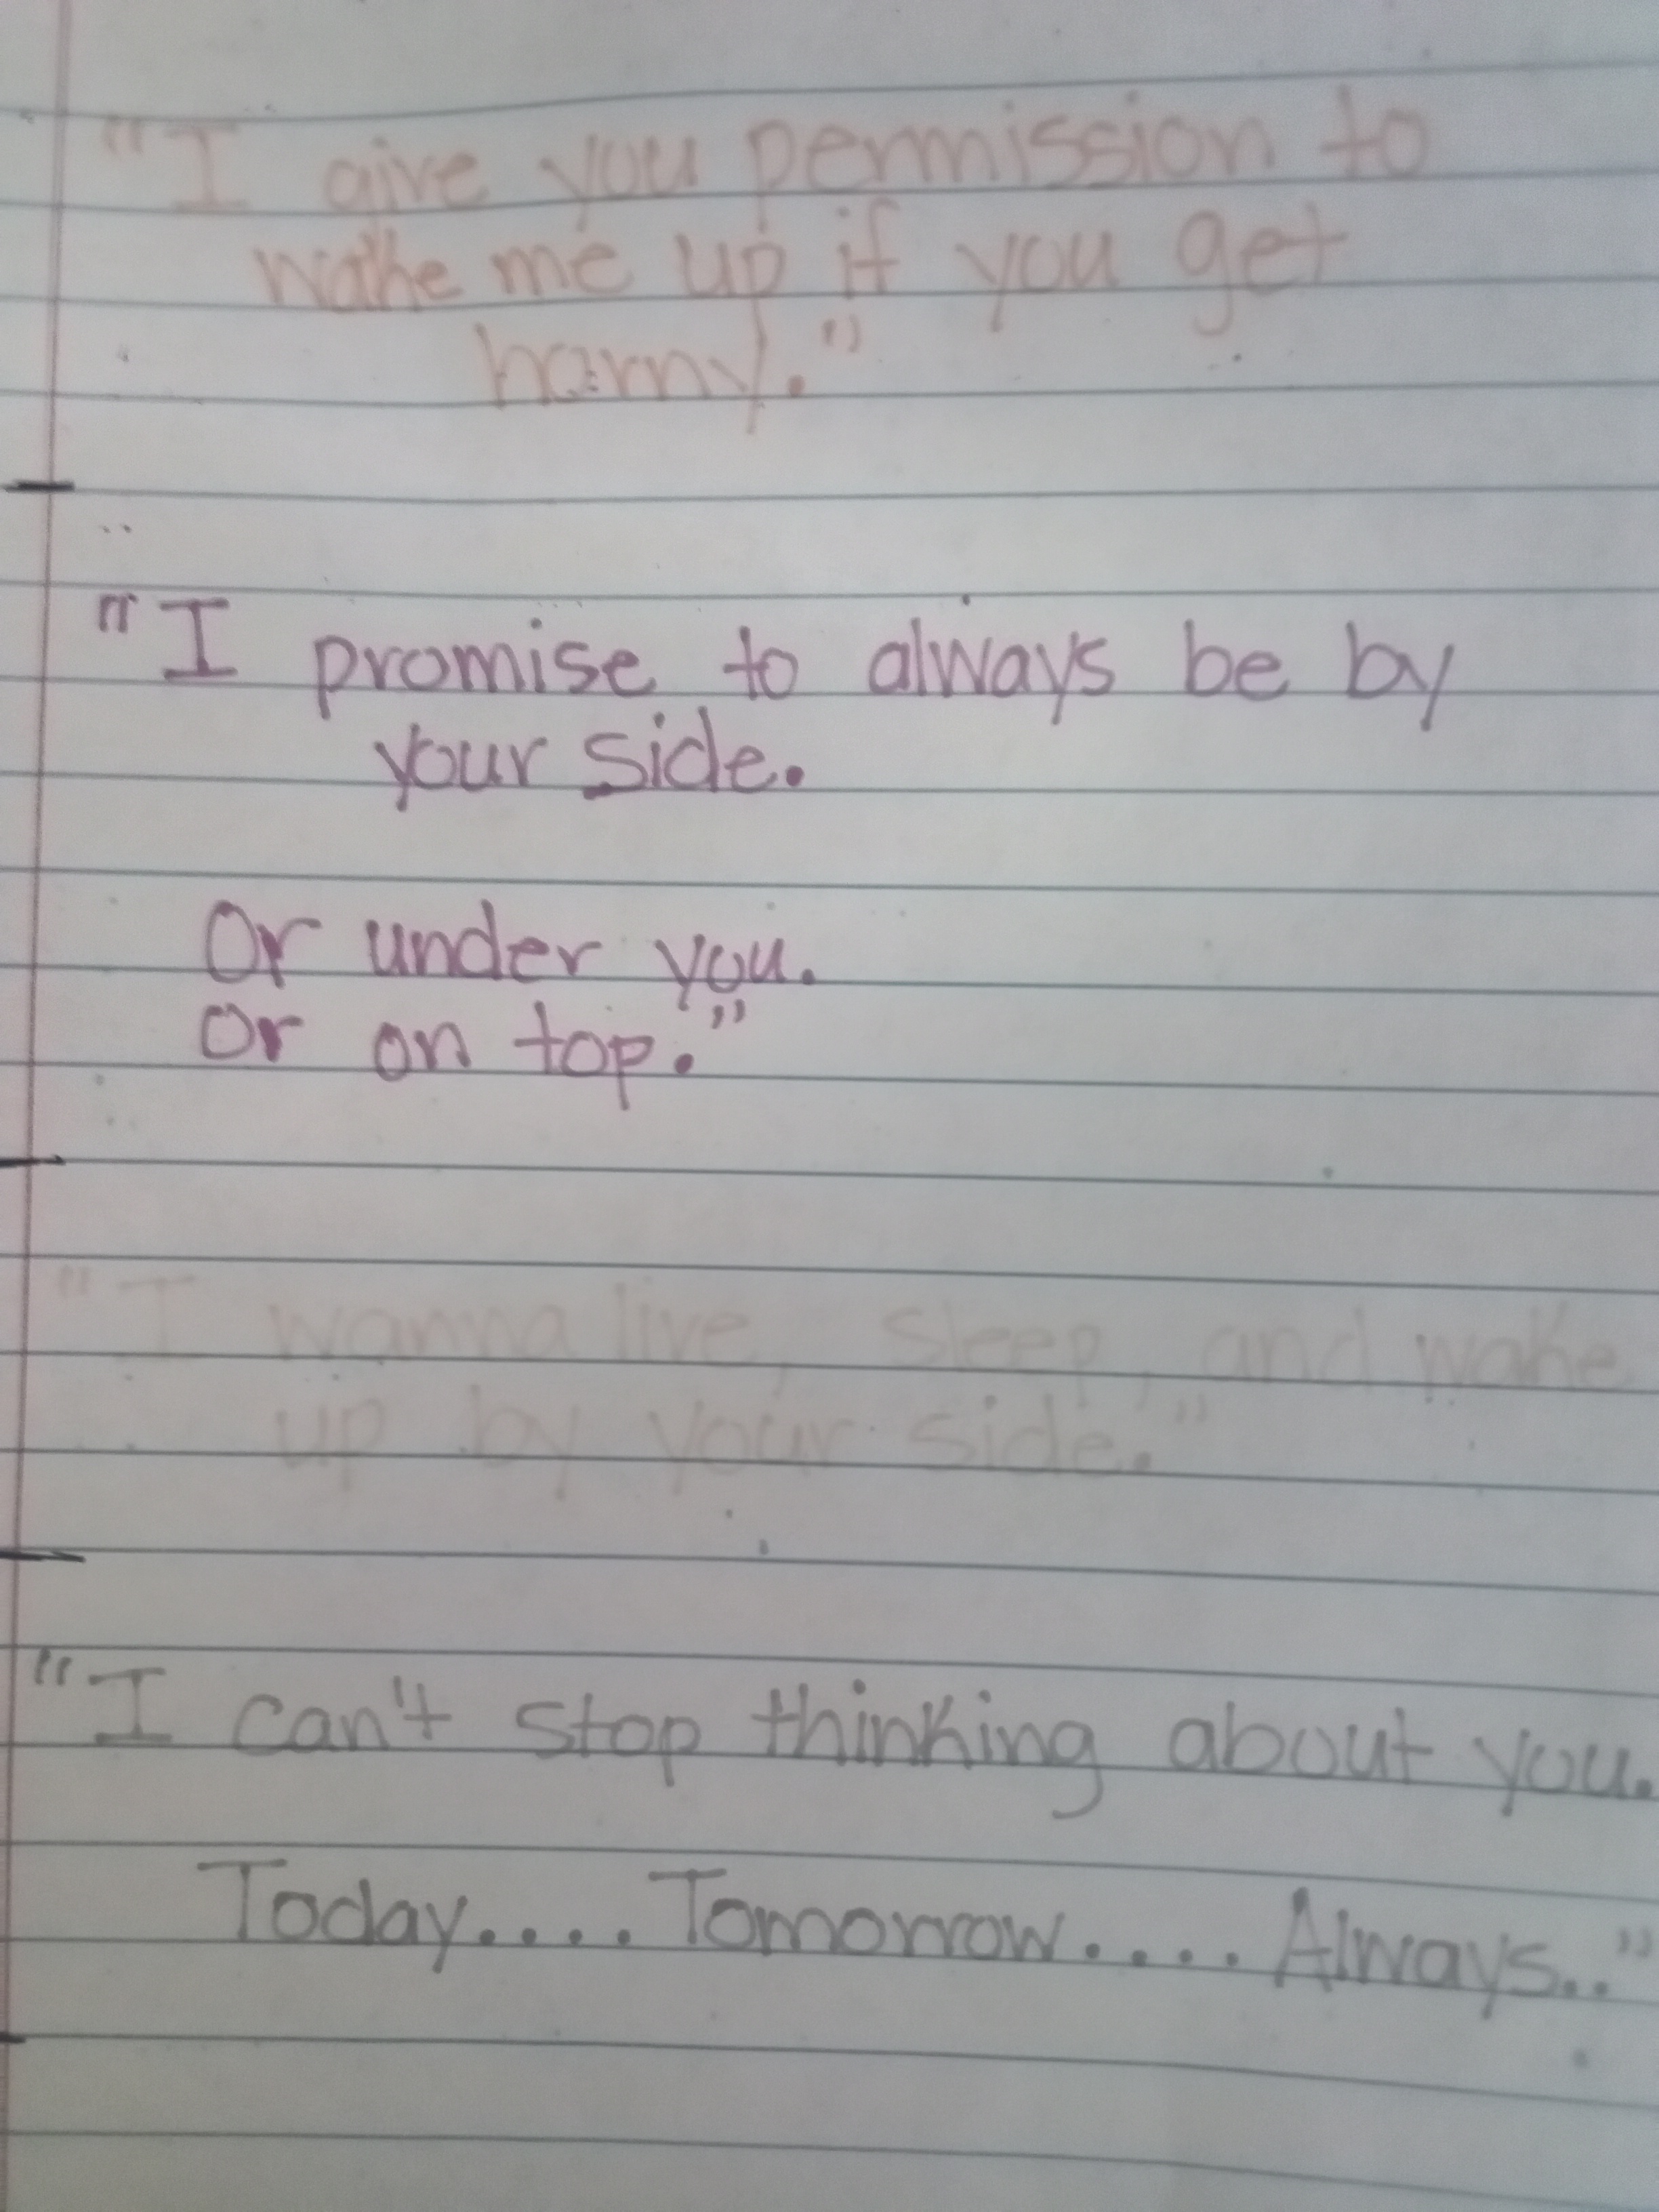 "I give you permission to
wake me up if you get
horny."
"I promise to always be by
your side.
Or under you.
Or on top."
"I wanna live, sleep, and wake
up by your side."
"I can't stop thinking about you.
Today.... Tomorrow.... Always.."